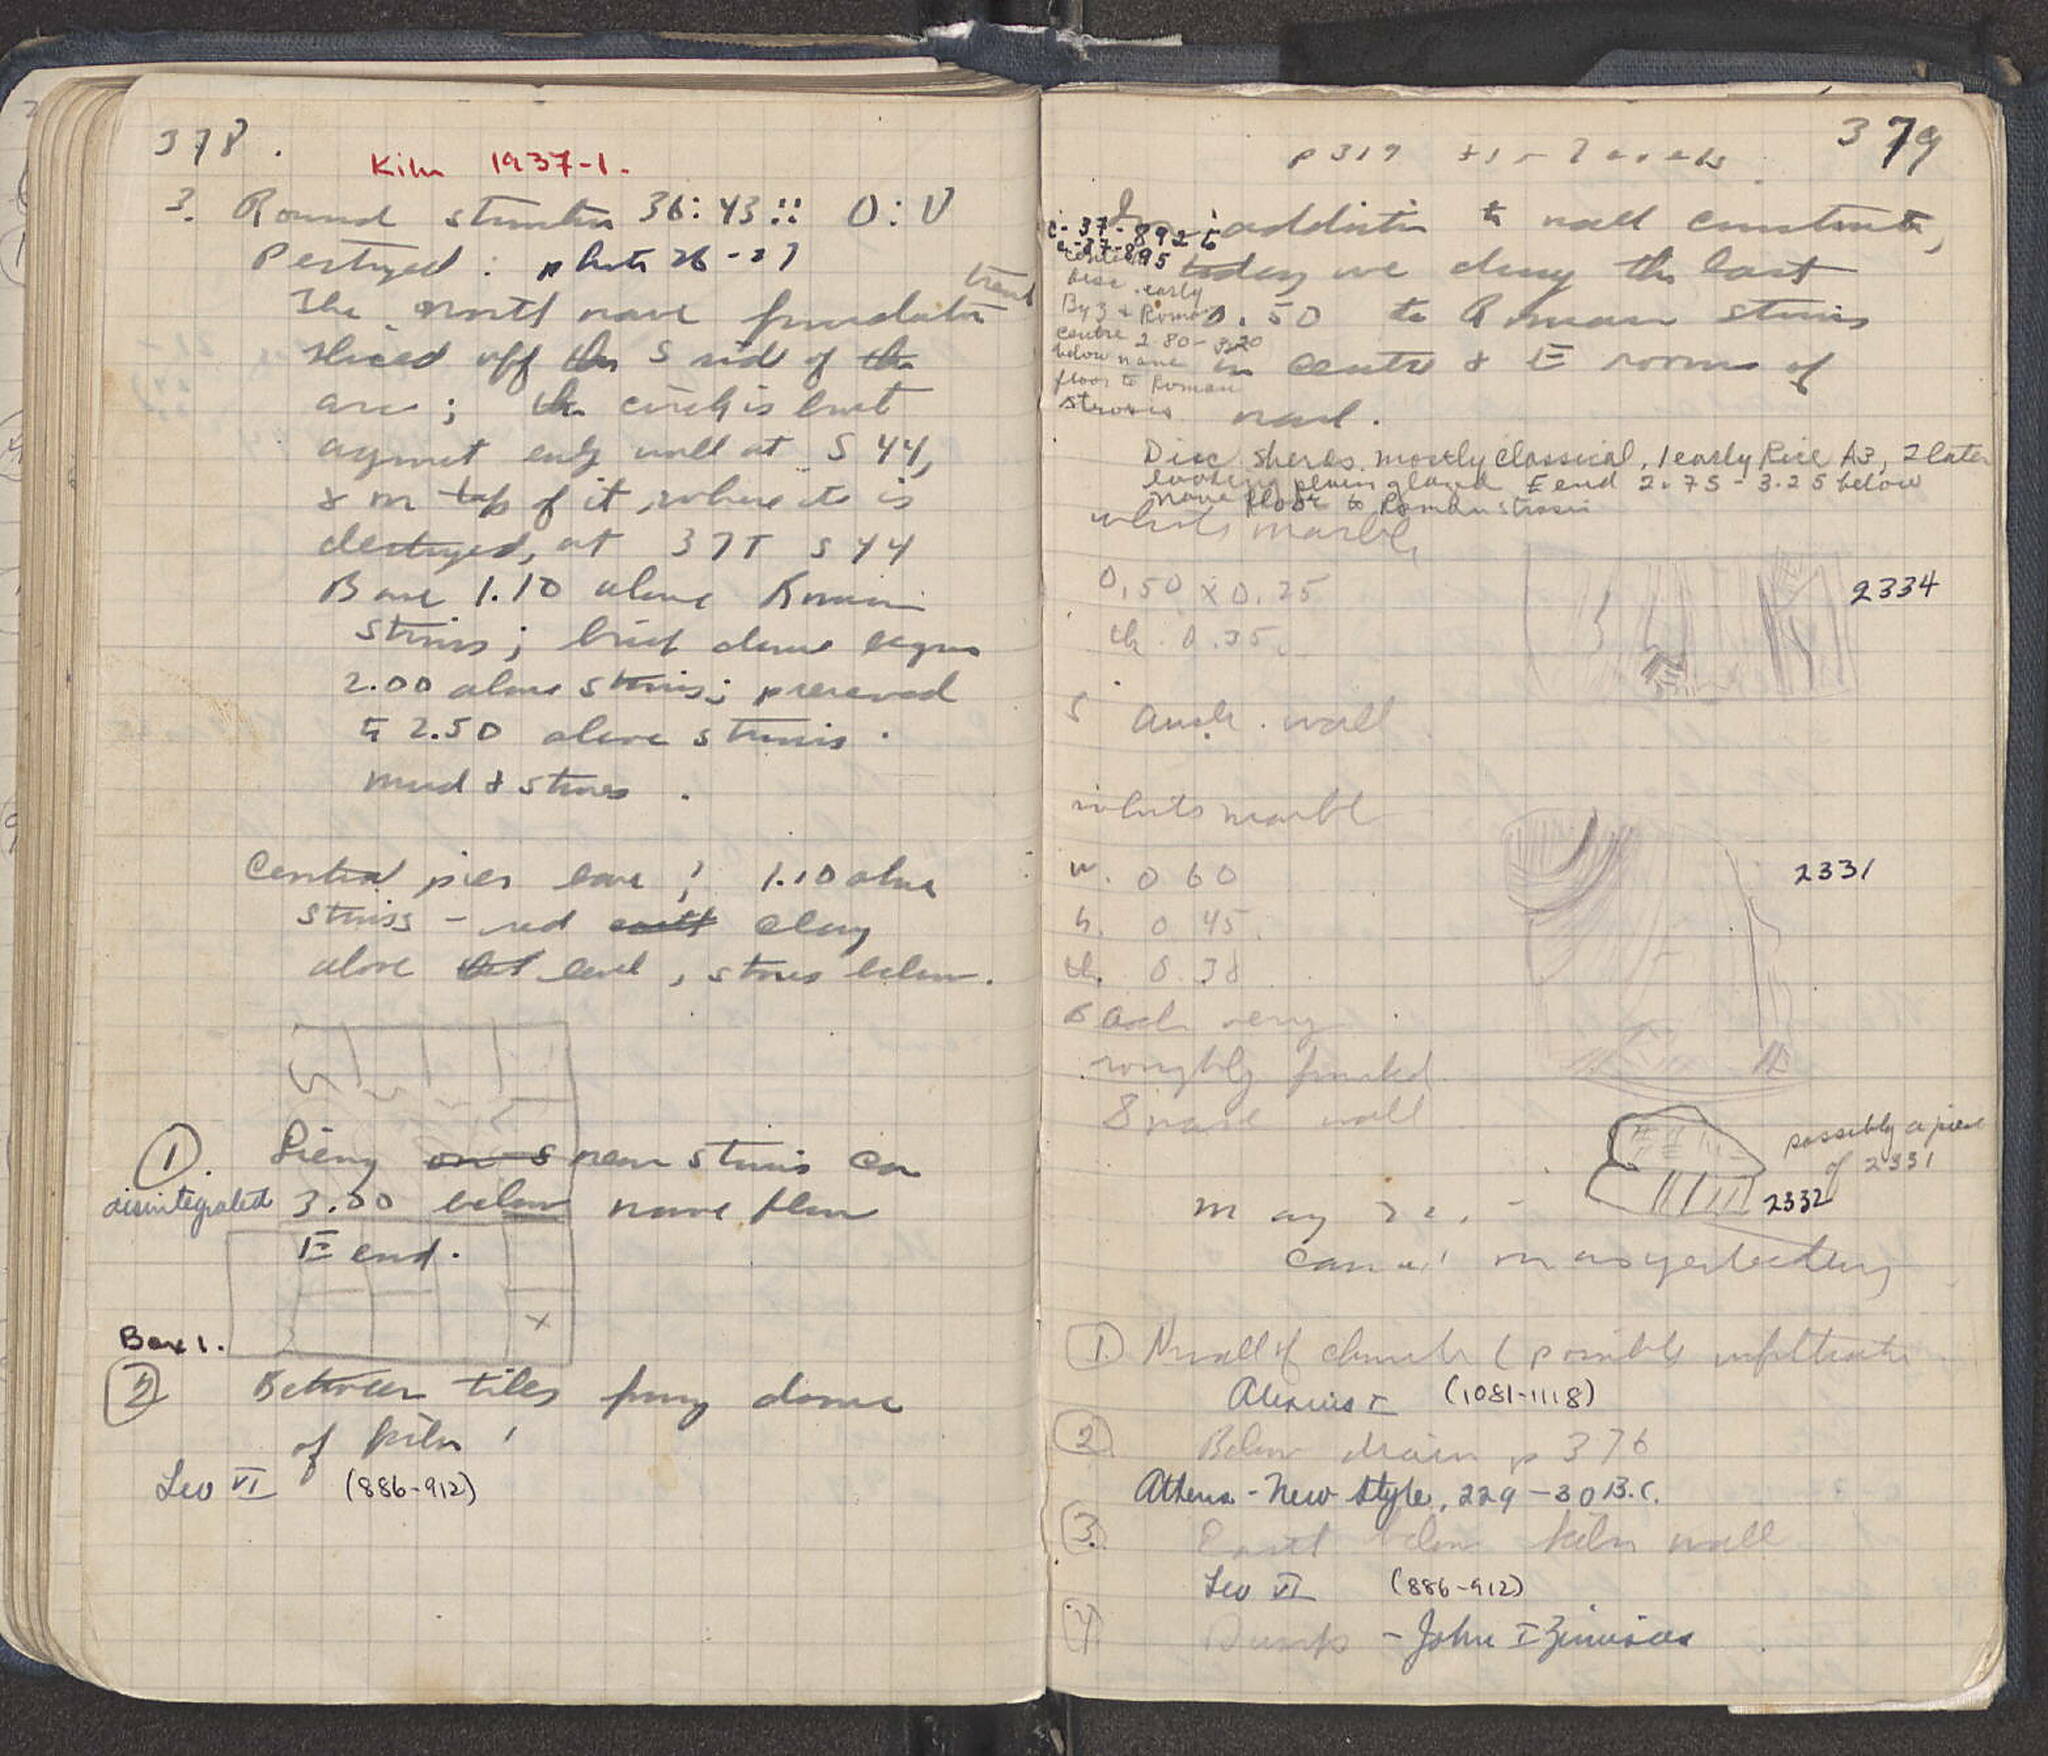 378.
Kiln 1937-1.
3. Round structure 36:43 :: O:V
Destroyed: photo 26-27
The north nave foundation trench
sliced off the S side of the
arc; the circle is built
against early wall at S 44,
& on top of it, where it is
destroyed, at 37T S 44
Base 1.10 above Roman
strosis; brick dome begins
2.00 above strosis; preserved
to 2.50 above strosis.
mud & stones.
Central pier base; 1.10 above
strosis - red earth clay
above that level, stones below.
1. Lieing on S near strosis ca
disintegrated 3.00 below nave floor
E end.
Box 1.
2 Between tiles from dome
of kiln
Leo VI (886-912)
379
p 319
In addition to wall construction,
C-37-892 to
C-37-895
today we dug the last
0.50 to Roman strosis
in centre & E rooms of
nave.
Disc. early
Byz & Roman
centre 2.80-3.20
below nave
floor to Roman
strosis
Disc. sherds mostly classical, 1 early Rice A3, 2 later
looking plain glazed E end 2.75-3.25 below
nave floor to Roman strosis
white marble
0.50 x 0.25
th. 0.35.
2334
S wall
white marble
w. 0 60
h. 0 45.
th. 0.38
2331
Back very
roughly
S nave wall
possibly a piece
of 2331
2332
May 22.
on as yesterday
1. N wall of church (possible infiltration
Alexius I (1081-1118)
2. Below drain p 376
Athens - New Style, 229-30 B.C.
3. East below kiln wall
Leo VI (886-912)
4. Dump - John I Zimisces